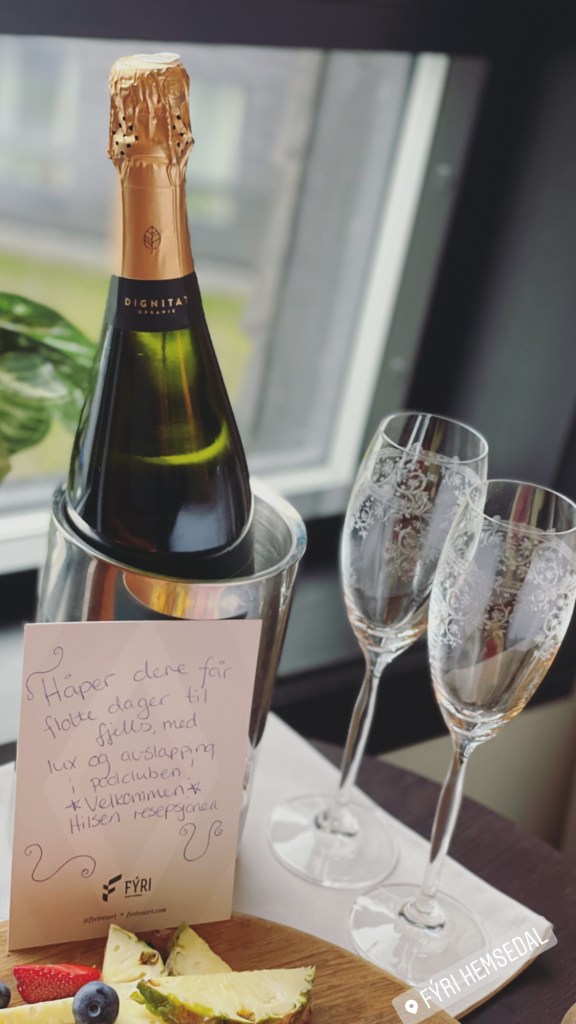 DIGNITAT
ORGANIC
Håper dere får
flotte dager til
fjells, med
lux og avslapping
i poolcluben!
*Velkommen!*
Hilsen resepsjonen
FÝRI
@fyriresort • fyriresort.com
FÝRI HEMSEDAL